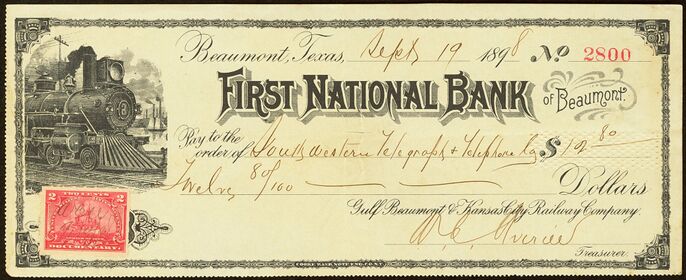 Beaumont, Texas, Sept 19 1898 No 2800
FIRST NATIONAL BANK of Beaumont.
Pay to the
order of Southwestern Telegraph & Telephone Co $ 12 80
Twelve 80/100 Dollars
Gulf Beaumont & Kansas City Railway Company.
Treasurer.
TWO CENTS
2 2
DOCUMENTARY